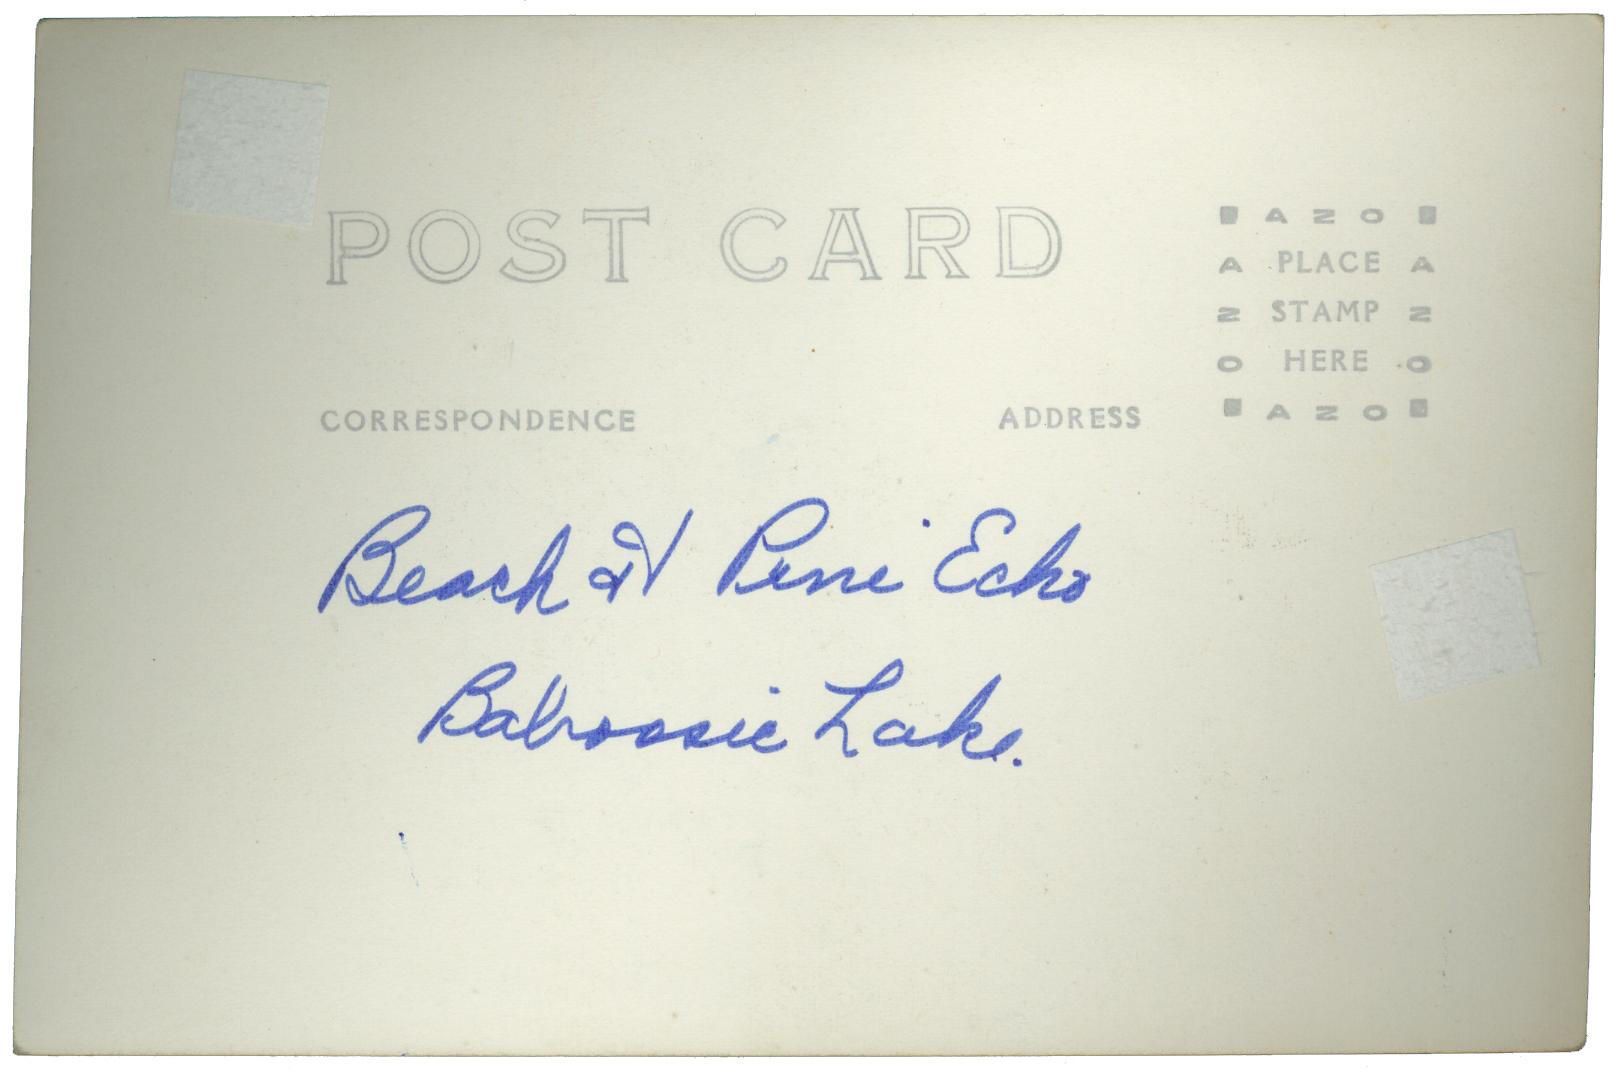 POST CARD
AZO
A PLACE A
Z STAMP Z
O HERE O
AZO
CORRESPONDENCE ADDRESS
Beach at Pine Echo
Baboosic Lake.